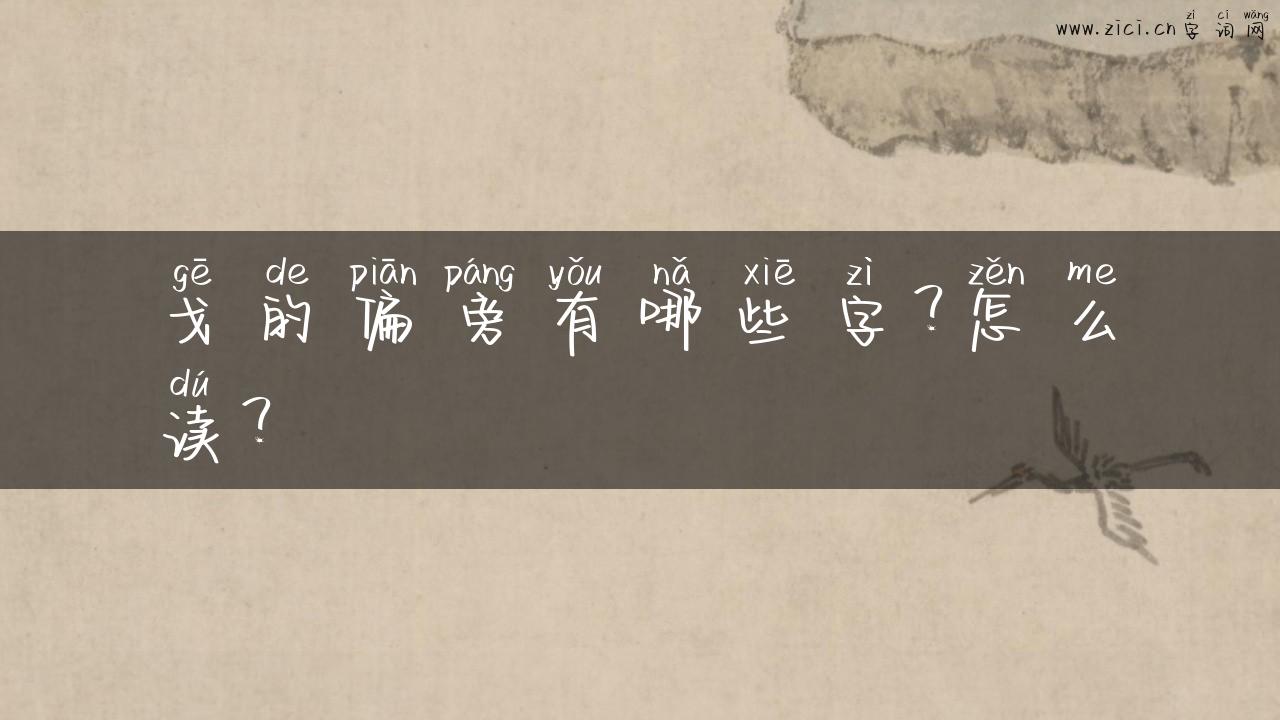 zì cí wǎng
www.zici.cn字词网
gē de piān páng yǒu nǎ xiē zì zěn me
戈的偏旁有哪些字?怎么
dú
读?